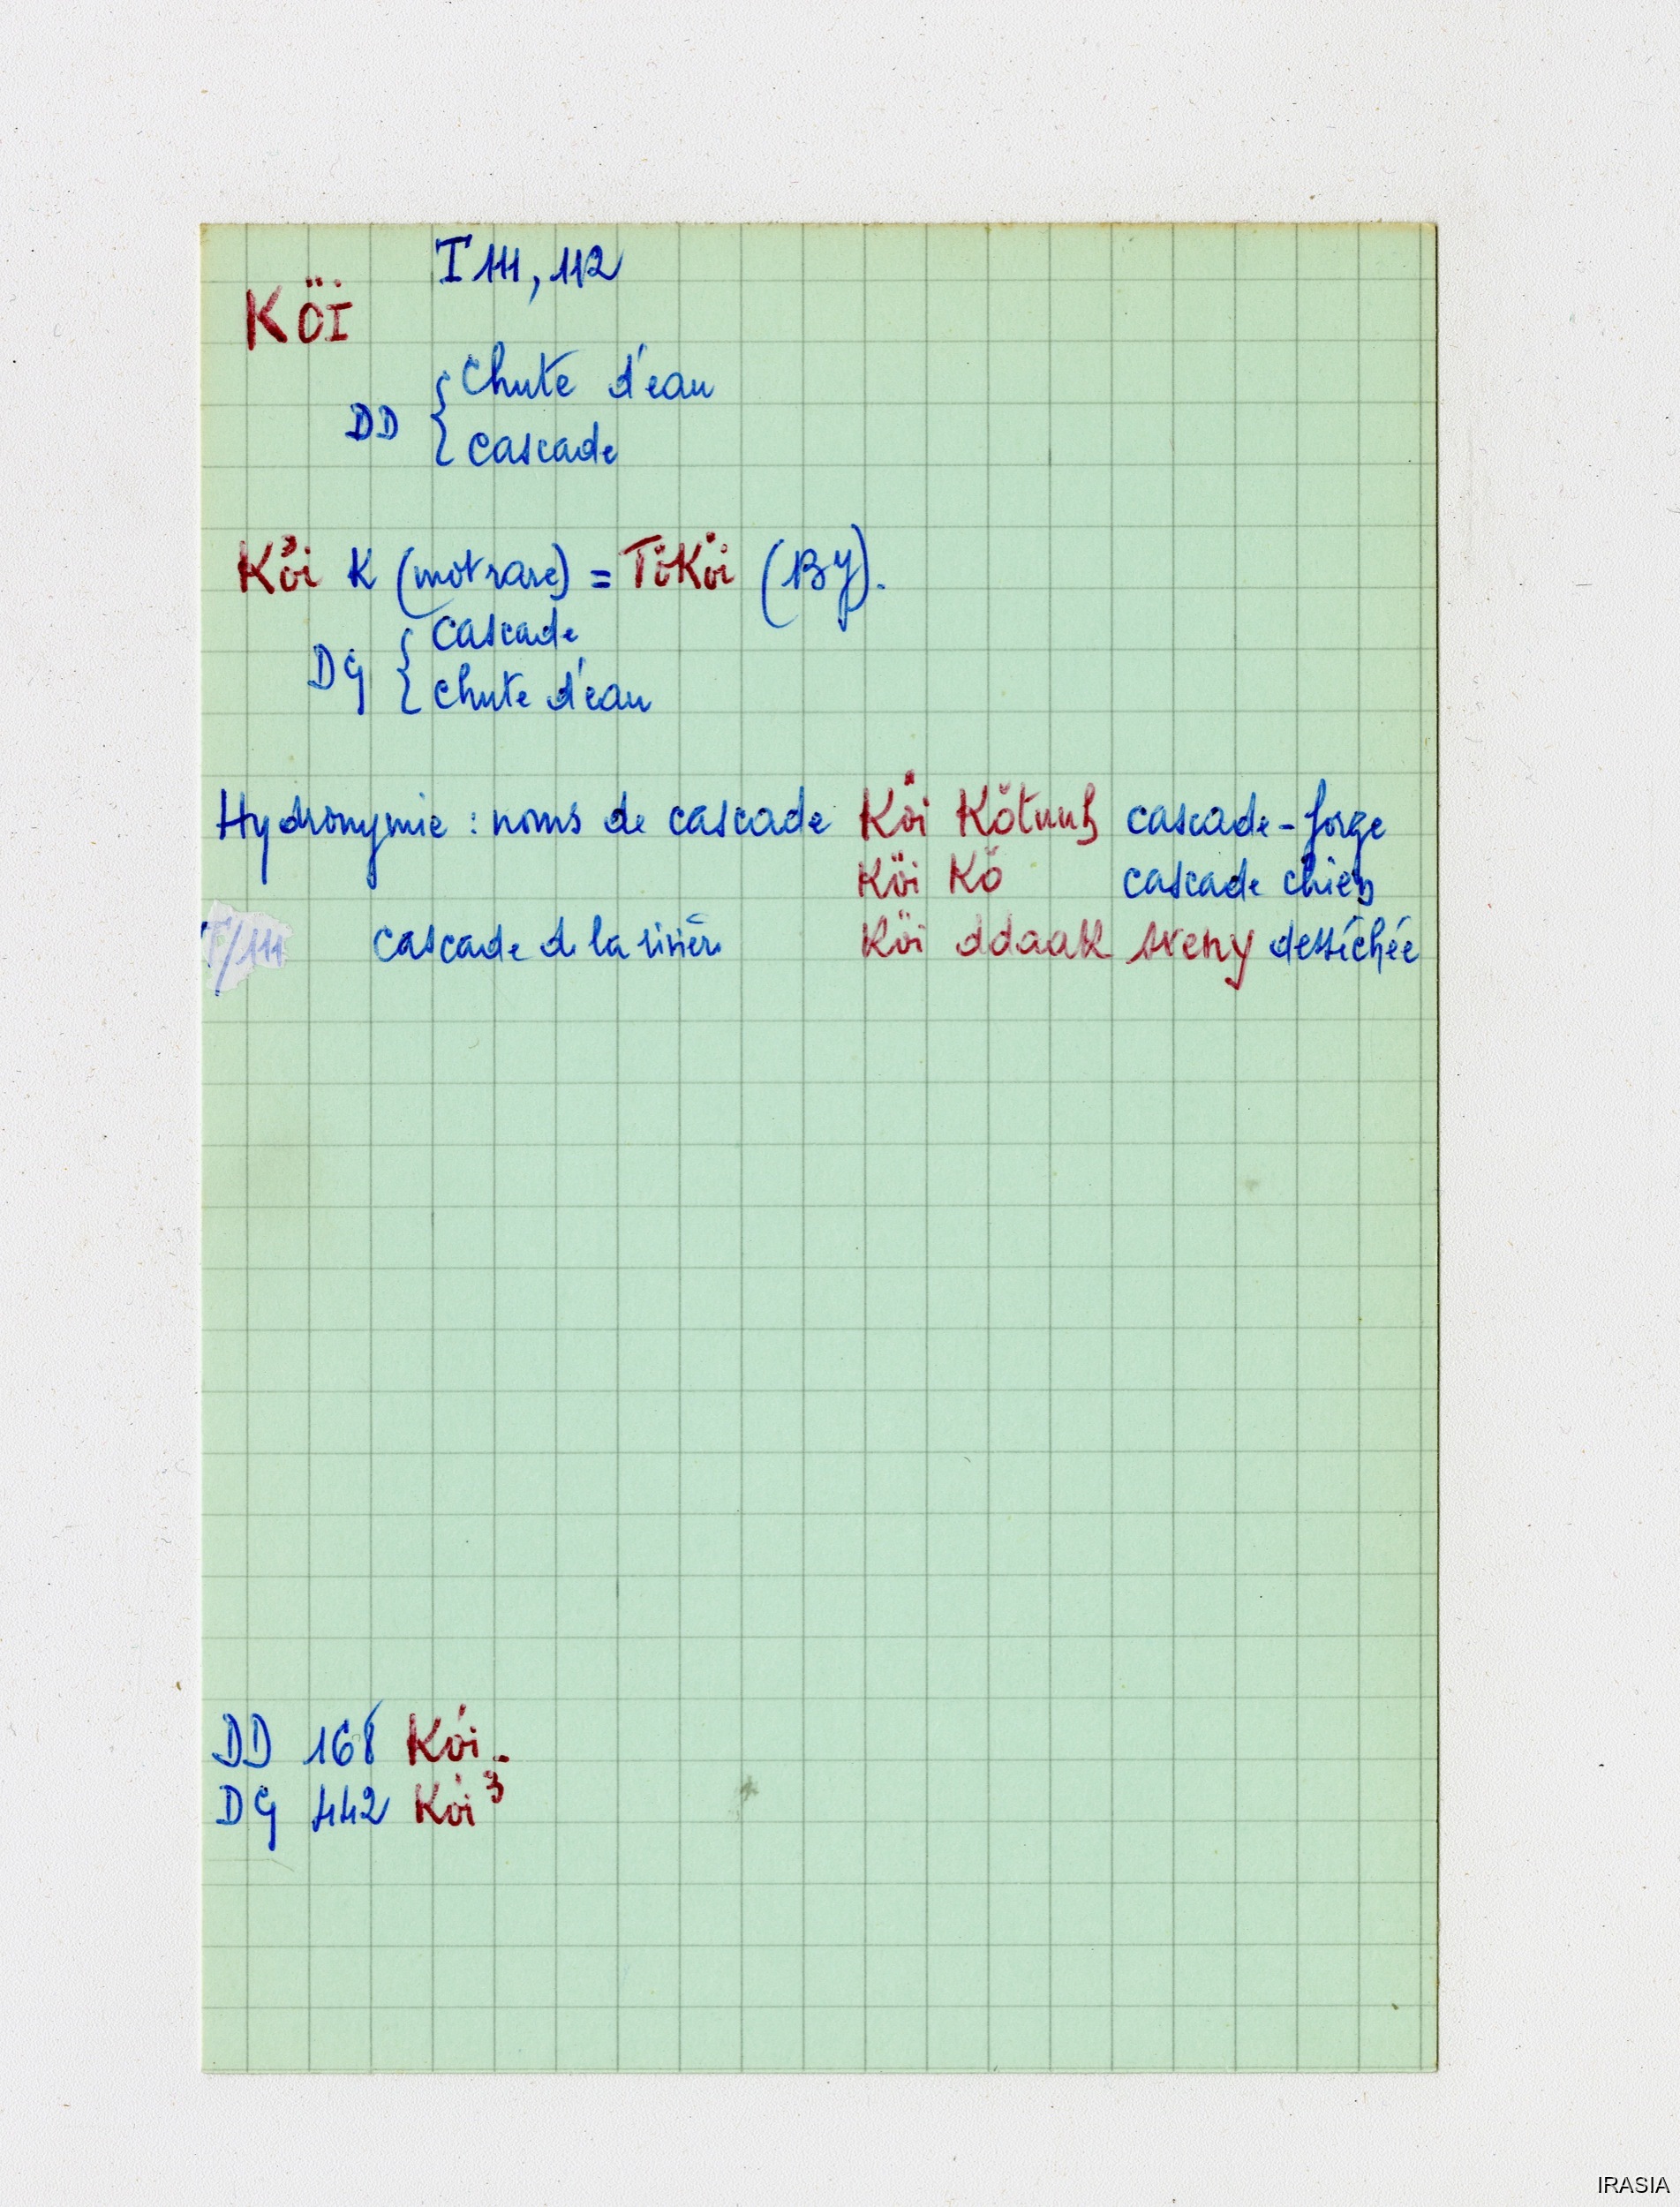 I 111, 112
KÖI
DD { Chute d'eau
cascade
Köi K (mot rare) = TöKöi (By).
DG { cascade
chute d'eau
Hydronymie : noms de cascade Köi Kŏtuub cascade-forge
Köi Kŏ cascade chien
I/111 cascade de la rivière Köi ddaak sreny desséchée
DD 168 Kói
DG 442 Kói 3
IRASIA